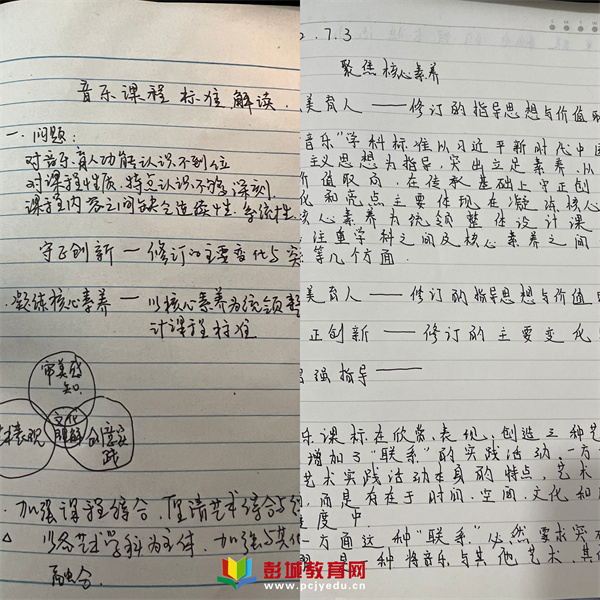 音乐课程标准解读.
一.问题:
对音乐育人功能认识不到位
对课程性质、特点认识不够深刻
课程内容之间缺乏连续性.系统性.
守正创新 — 修订的主要变化与突
凝练核心素养 — 以核心素养为统领整
计课程标准
审美感
知
术表现
文化
理解
创意实
践
加强课程综合,厘清艺术综合与
以各艺术学科为主体.加强与其他
融合.
2.7.3
聚焦核心素养
美育人 —— 修订的指导思想与价值取
音乐"学科标准以习近平新时代中国
主义思想为指导,突出立足素养.从
价值取向,在传承基础上守正创
化和亮点主要体现在凝练核心
核心素养为统领整体设计课
注重学科之间及核心素养之间
等几个方面.
美育人 —— 修订的指导思想与价值
正创新 —— 修订的主要变化
强指导 ——
乐课标在欣赏.表现,创造三种艺
增加了"联系"的实践活动.一方
艺术实践活动本身的特点,艺术
,而是存在于时间.空间.文化和
度中.
一方面这种"联系"必然要求突
是一种将音乐与其他艺术.其
彭城教育网
www.pcjyedu.cn